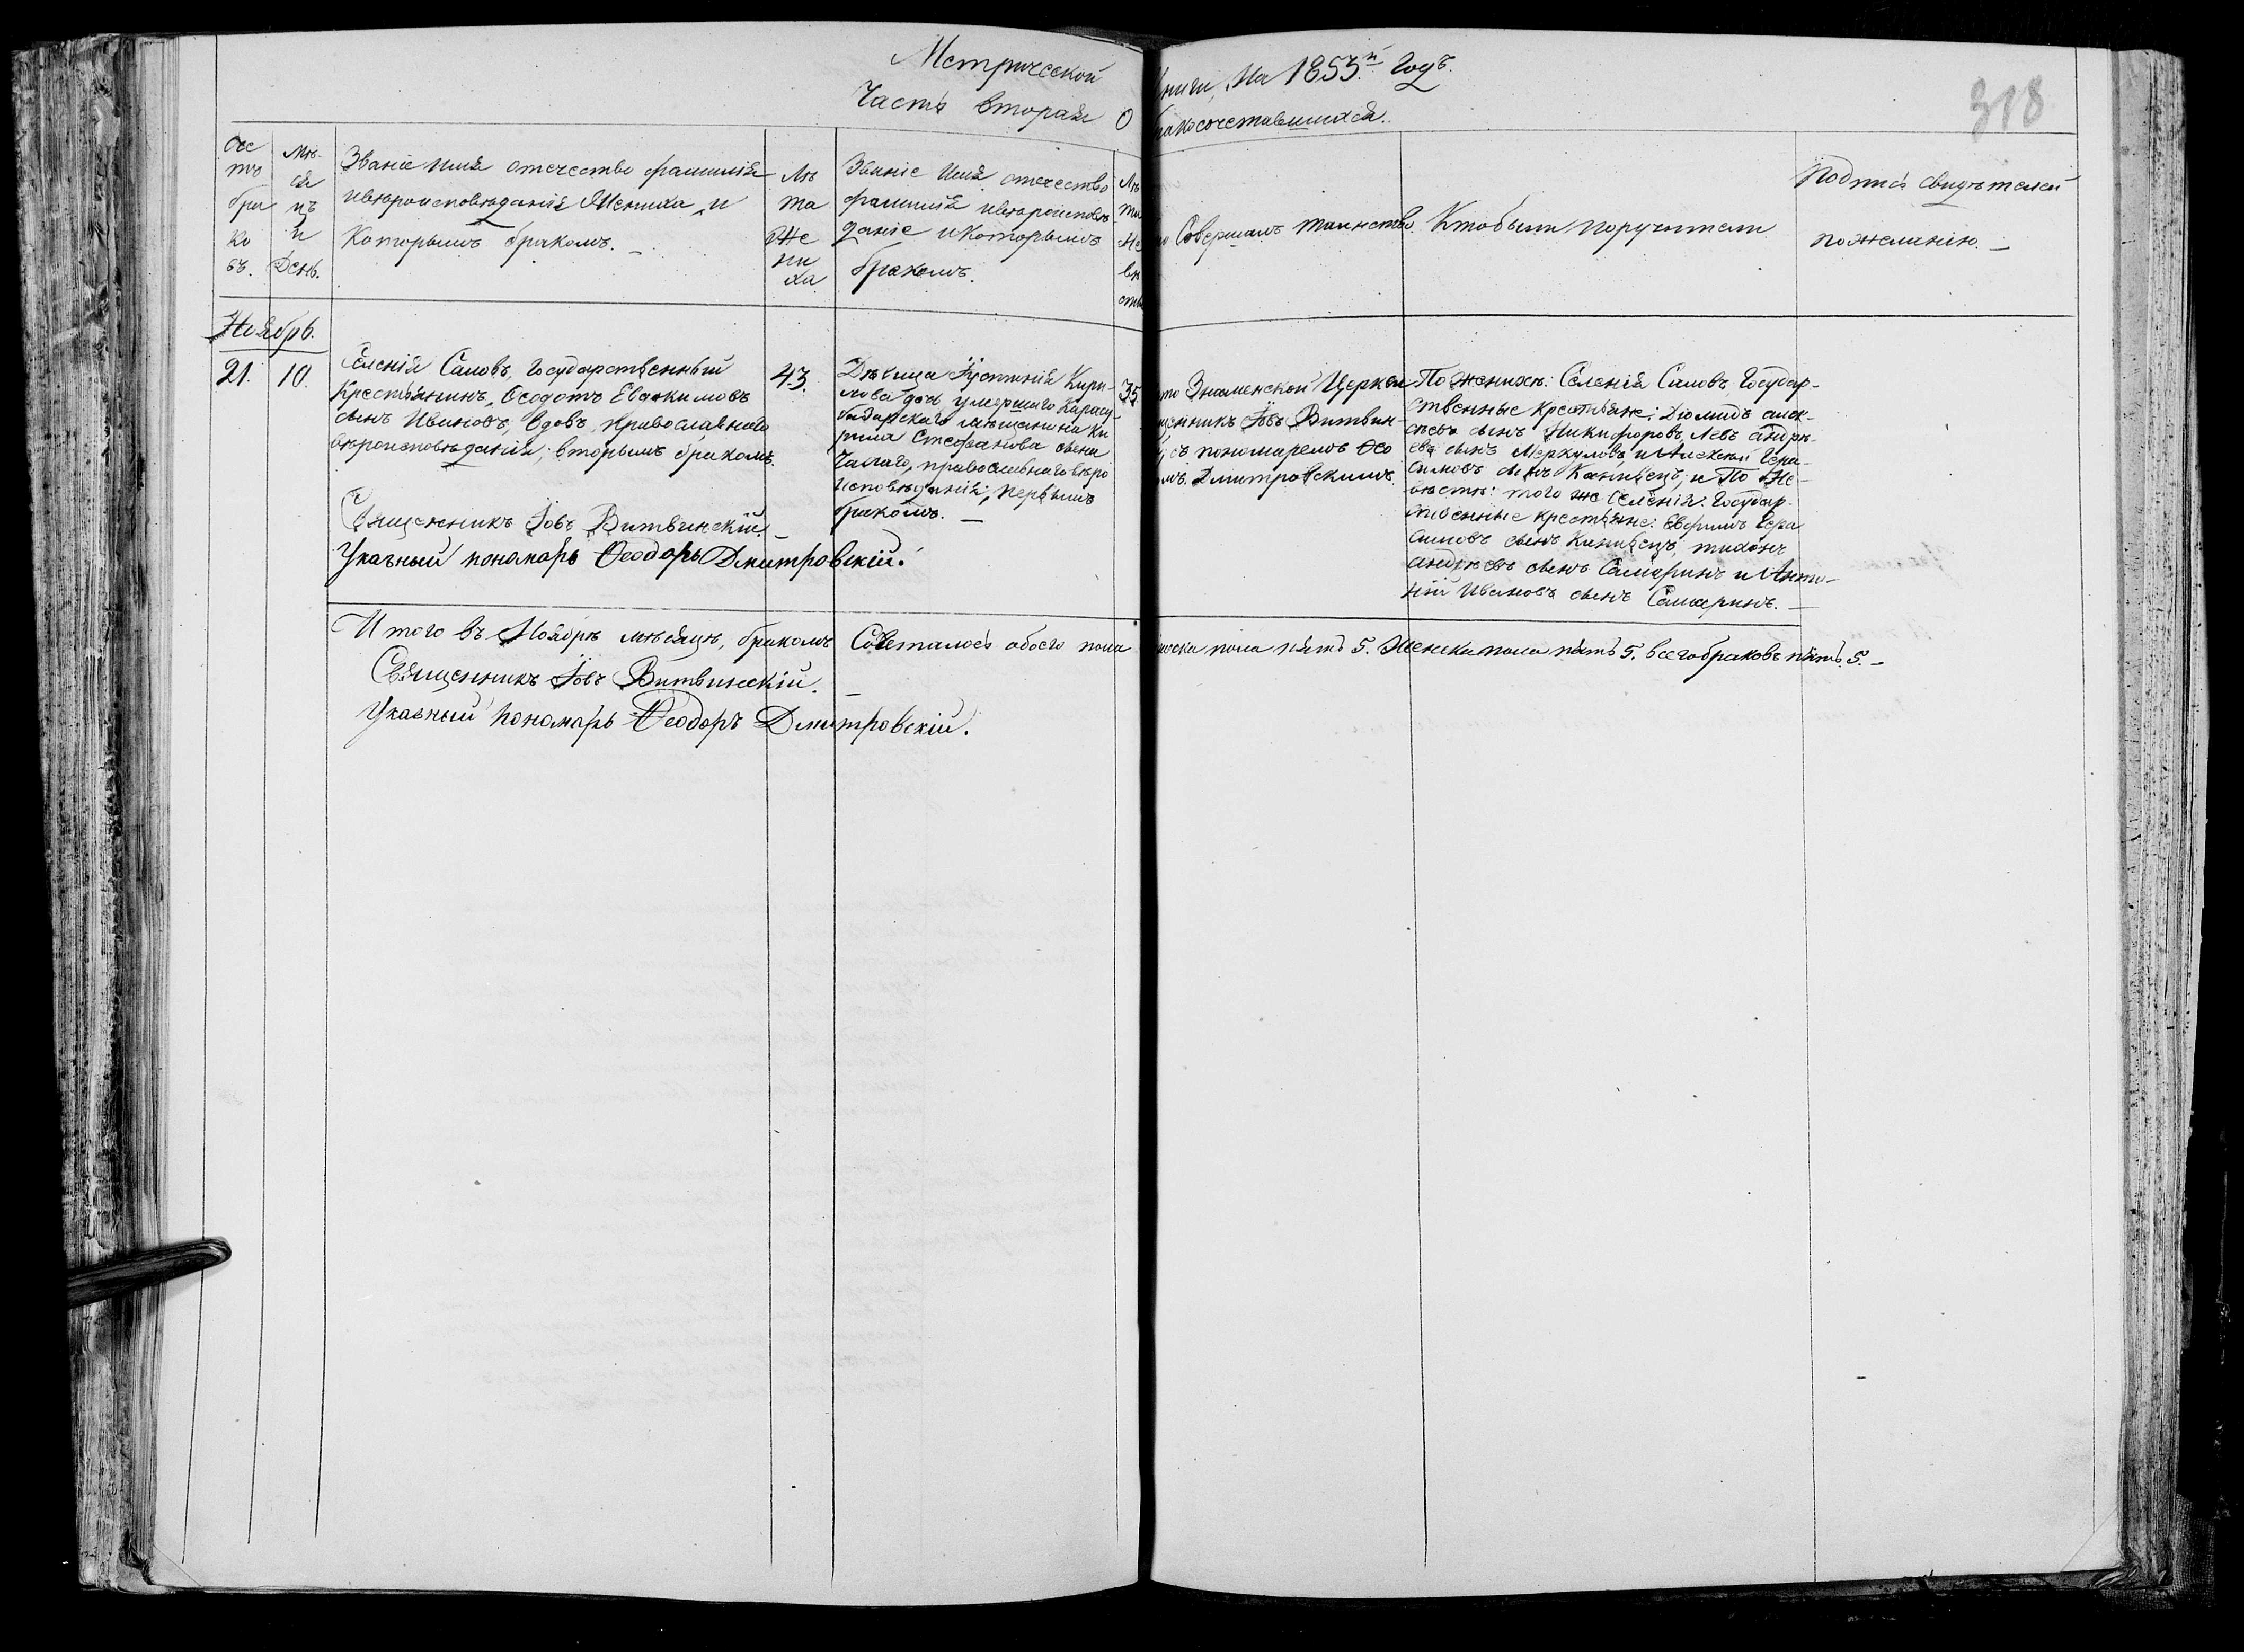 Метрической книги, На 1853.й Годъ.
Часть вторая О бракосочетавшихся.
318
Сче
тъ
бра
ко
въ.
Мѣ-
ся
цъ
и
День.
Званіе имя отечество фамилія
ивѣроисповѣданія Жениха, и
Которымъ бракомъ. —
Лѣ
та
Же
ни
ха
Званіе Имя отечество
фамилія ивѣроисповѣ-
даніе икоторымъ
бракомъ.
Лѣ
та
Не
вѣ
сты
Совершалъ таинство.
Ктобыли поручители
Подпись свидѣтелей
пожеланію. —
Ноябрь.
21.
10.
Селенія Саловъ Государственный
Крестьянинъ, Ѳеодотъ Евдокимовъ
сынъ Ивановъ, Вдовъ, православнаго
вѣроисповѣданія; вторымъ бракомъ.
Священникъ Іовъ Витвинскій. —
Указный пономарь Ѳеодоръ Дмитровскій.
43.
Дѣвица Іустинія Кири-
лова дочь умершаго Карасу-
базарскаго мѣщанина Ки
рила Стефанова сына
православнаго вѣро
исповѣданія; первымъ
бракомъ. —
35
Знаменской Церкви
щенникъ Іовъ Витвин
съ пономаремъ Ѳео
Дмитровскимъ.
По женихѣ: Селенія Саловъ Государ-
ственные крестьяне: Діомидъ алек-
сѣевъ сынъ Никифоровъ, Левъ андрѣ-
евъ сынъ Меркуловъ и Алексѣй Гера-
симовъ сынъ и По Не-
вѣстѣ: того же Селенія: Государ-
ственные крестьяне: Ефимъ Гера
симовъ сынъ тихонъ
андрѣевъ сынъ Самаринъ и Анто-
ній Ивановъ сынъ Самаринъ. —
Итого въ Ноябрѣ мѣсяцѣ, бракомъ Сочеталось обоего пола мужеска пола пять 5. Женска пола пять 5. всего браковъ пять. 5. —
Священникъ Іовъ Витвинскій. —
Указный пономарь Ѳеодоръ Дмитровскій.